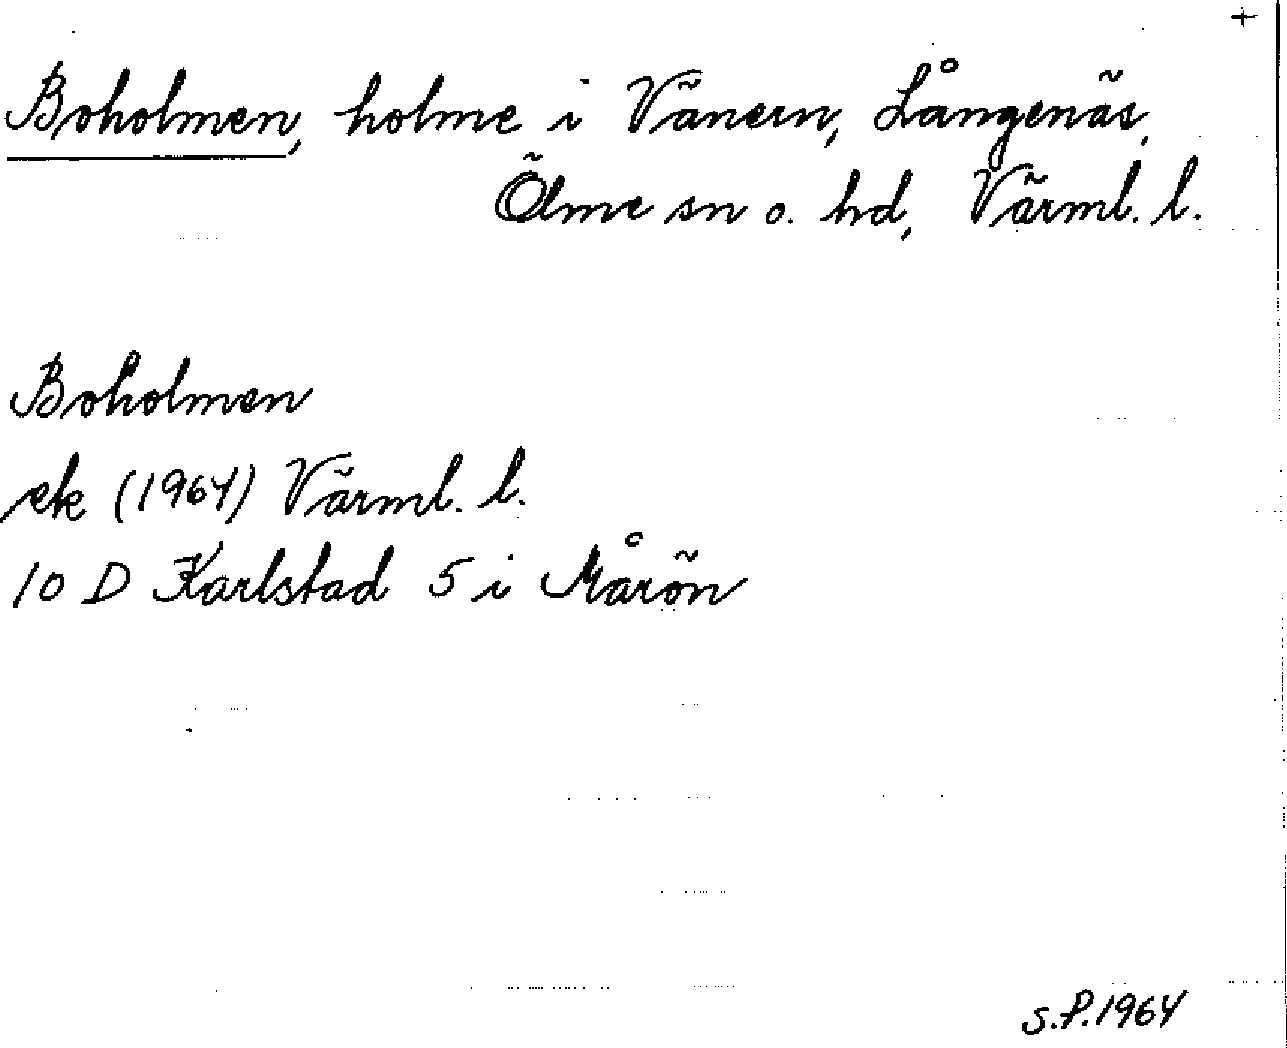 +
Boholmen, holme i Vänern, Långenäs,
Ölme sn o. hd, Värml. l.
Boholmen
ek (1964) Värml. l.
10 D Karlstad 5 i Mårön
S.P.1964